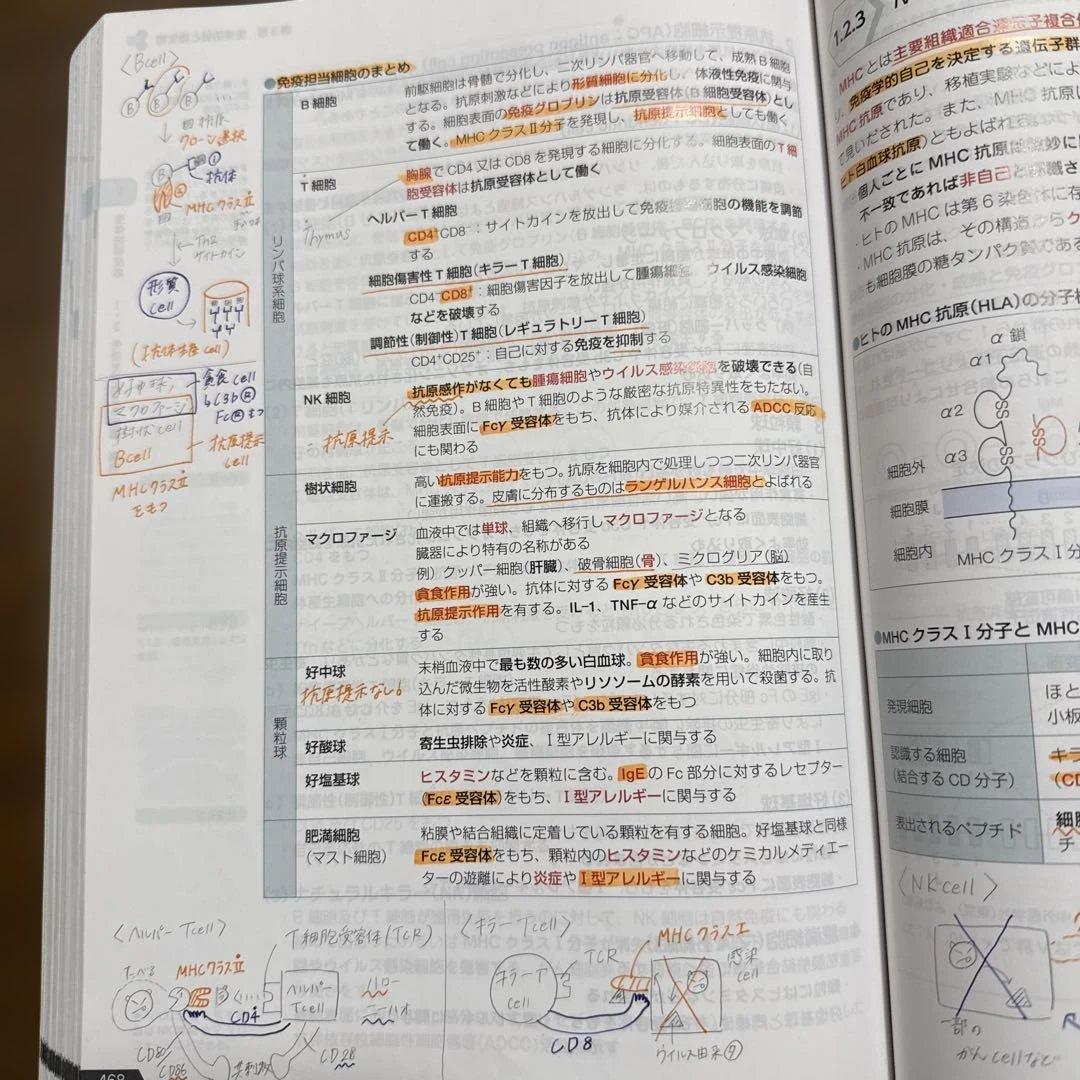 〈Bcell〉
クローン選択
抗体
MHCクラスⅡ
Th2
サイトカイン
形質
cell
(抗体生産cell)
好中球
マクロファージ
樹状cell
Bcell
貪食cell
C3b
Fc もつ
抗原提示
cell
MHCクラスⅡ
をもつ
●免疫担当細胞のまとめ
リンパ球系細胞
B 細胞
前駆細胞は骨髄で分化し、二次リンパ器官へ移動して、成熟 B 細胞
となる。抗原刺激などにより形質細胞に分化し、体液性免疫に関与
する。細胞表面の免疫グロブリンは抗原受容体(B 細胞受容体)とし
て働く。MHC クラス Ⅱ 分子を発現し、抗原提示細胞としても働く
T 細胞
Thymus
胸腺で CD4 又は CD8 を発現する細胞に分化する。細胞表面の T 細
胞受容体は抗原受容体として働く
ヘルパー T 細胞
CD4⁺CD8⁻：サイトカインを放出して免疫担当細胞の機能を調節
する
細胞傷害性 T 細胞(キラー T 細胞)
CD4⁻CD8⁺：細胞傷害因子を放出して腫瘍細胞、ウイルス感染細胞
などを破壊する
調節性(制御性)T 細胞(レギュラトリー T 細胞)
CD4⁺CD25⁺：自己に対する免疫を抑制する
NK 細胞
抗原感作がなくても腫瘍細胞やウイルス感染細胞を破壊できる(自
然免疫)。B 細胞や T 細胞のような厳密な抗原特異性をもたない。
細胞表面に Fcγ 受容体をもち、抗体により媒介される ADCC 反応
にも関わる
抗原提示
抗原提示細胞
樹状細胞
高い抗原提示能力をもつ。抗原を細胞内で処理しつつ二次リンパ器官
に運搬する。皮膚に分布するものはランゲルハンス細胞とよばれる
マクロファージ
血液中では単球、組織へ移行しマクロファージとなる
臓器により特有の名称がある
例）クッパー細胞(肝臓)、破骨細胞(骨)、ミクログリア(脳)
貪食作用が強い。抗体に対する Fcγ 受容体や C3b 受容体をもつ。
抗原提示作用を有する。IL-1、TNF-α などのサイトカインを産生
する
顆粒球
好中球
抗原提示なし。
末梢血液中で最も数の多い白血球。貪食作用が強い。細胞内に取り
込んだ微生物を活性酸素やリソソームの酵素を用いて殺菌する。抗
体に対する Fcγ 受容体や C3b 受容体をもつ
好酸球
寄生虫排除や炎症、Ⅰ 型アレルギーに関与する
好塩基球
ヒスタミンなどを顆粒に含む。IgE の Fc 部分に対するレセプター
(Fcε 受容体)をもち、Ⅰ 型アレルギーに関与する
肥満細胞
(マスト細胞)
粘膜や結合組織に定着している顆粒を有する細胞。好塩基球と同様
Fcε 受容体をもち、顆粒内のヒスタミンなどのケミカルメディエー
ターの遊離により炎症や Ⅰ 型アレルギーに関与する
〈ヘルパーTcell〉
T細胞受容体(TCR)
たべる
MHCクラスⅡ
ヘルパー
Tcell
CD4
CD80
CD86
共刺激
CD28
〈キラーTcell〉
キラーT
cell
TCR
MHCクラスⅠ
感染
cell
CD8
ウイルス由来
468
1.2.3
MHCとは主要組織適合遺伝子複合
免疫学的自己を決定する遺伝子群
MHC 抗原であり、移植実験などによ
て見いだされた。また、MHC 抗原は
ヒト白血球抗原)ともよばれる。
個人ごとに MHC 抗原は微妙に
不一致であれば非自己と認識さ
ヒトの MHC は第 6 染色体に存
MHC 抗原は、その構造から
も細胞膜の糖タンパク質である
●ヒトの MHC 抗原(HLA)の分子
α 鎖
α1
α2
α3
SS
SS
SS
細胞外
細胞膜
細胞内
MHC クラス Ⅰ 分
●MHC クラス Ⅰ 分子と MHC
発現細胞
ほと
小板
認識する細胞
(結合する CD 分子)
キラ
(CD
表出されるペプチド
細胞
チ
〈NKcell〉
一部の
がんcellなど